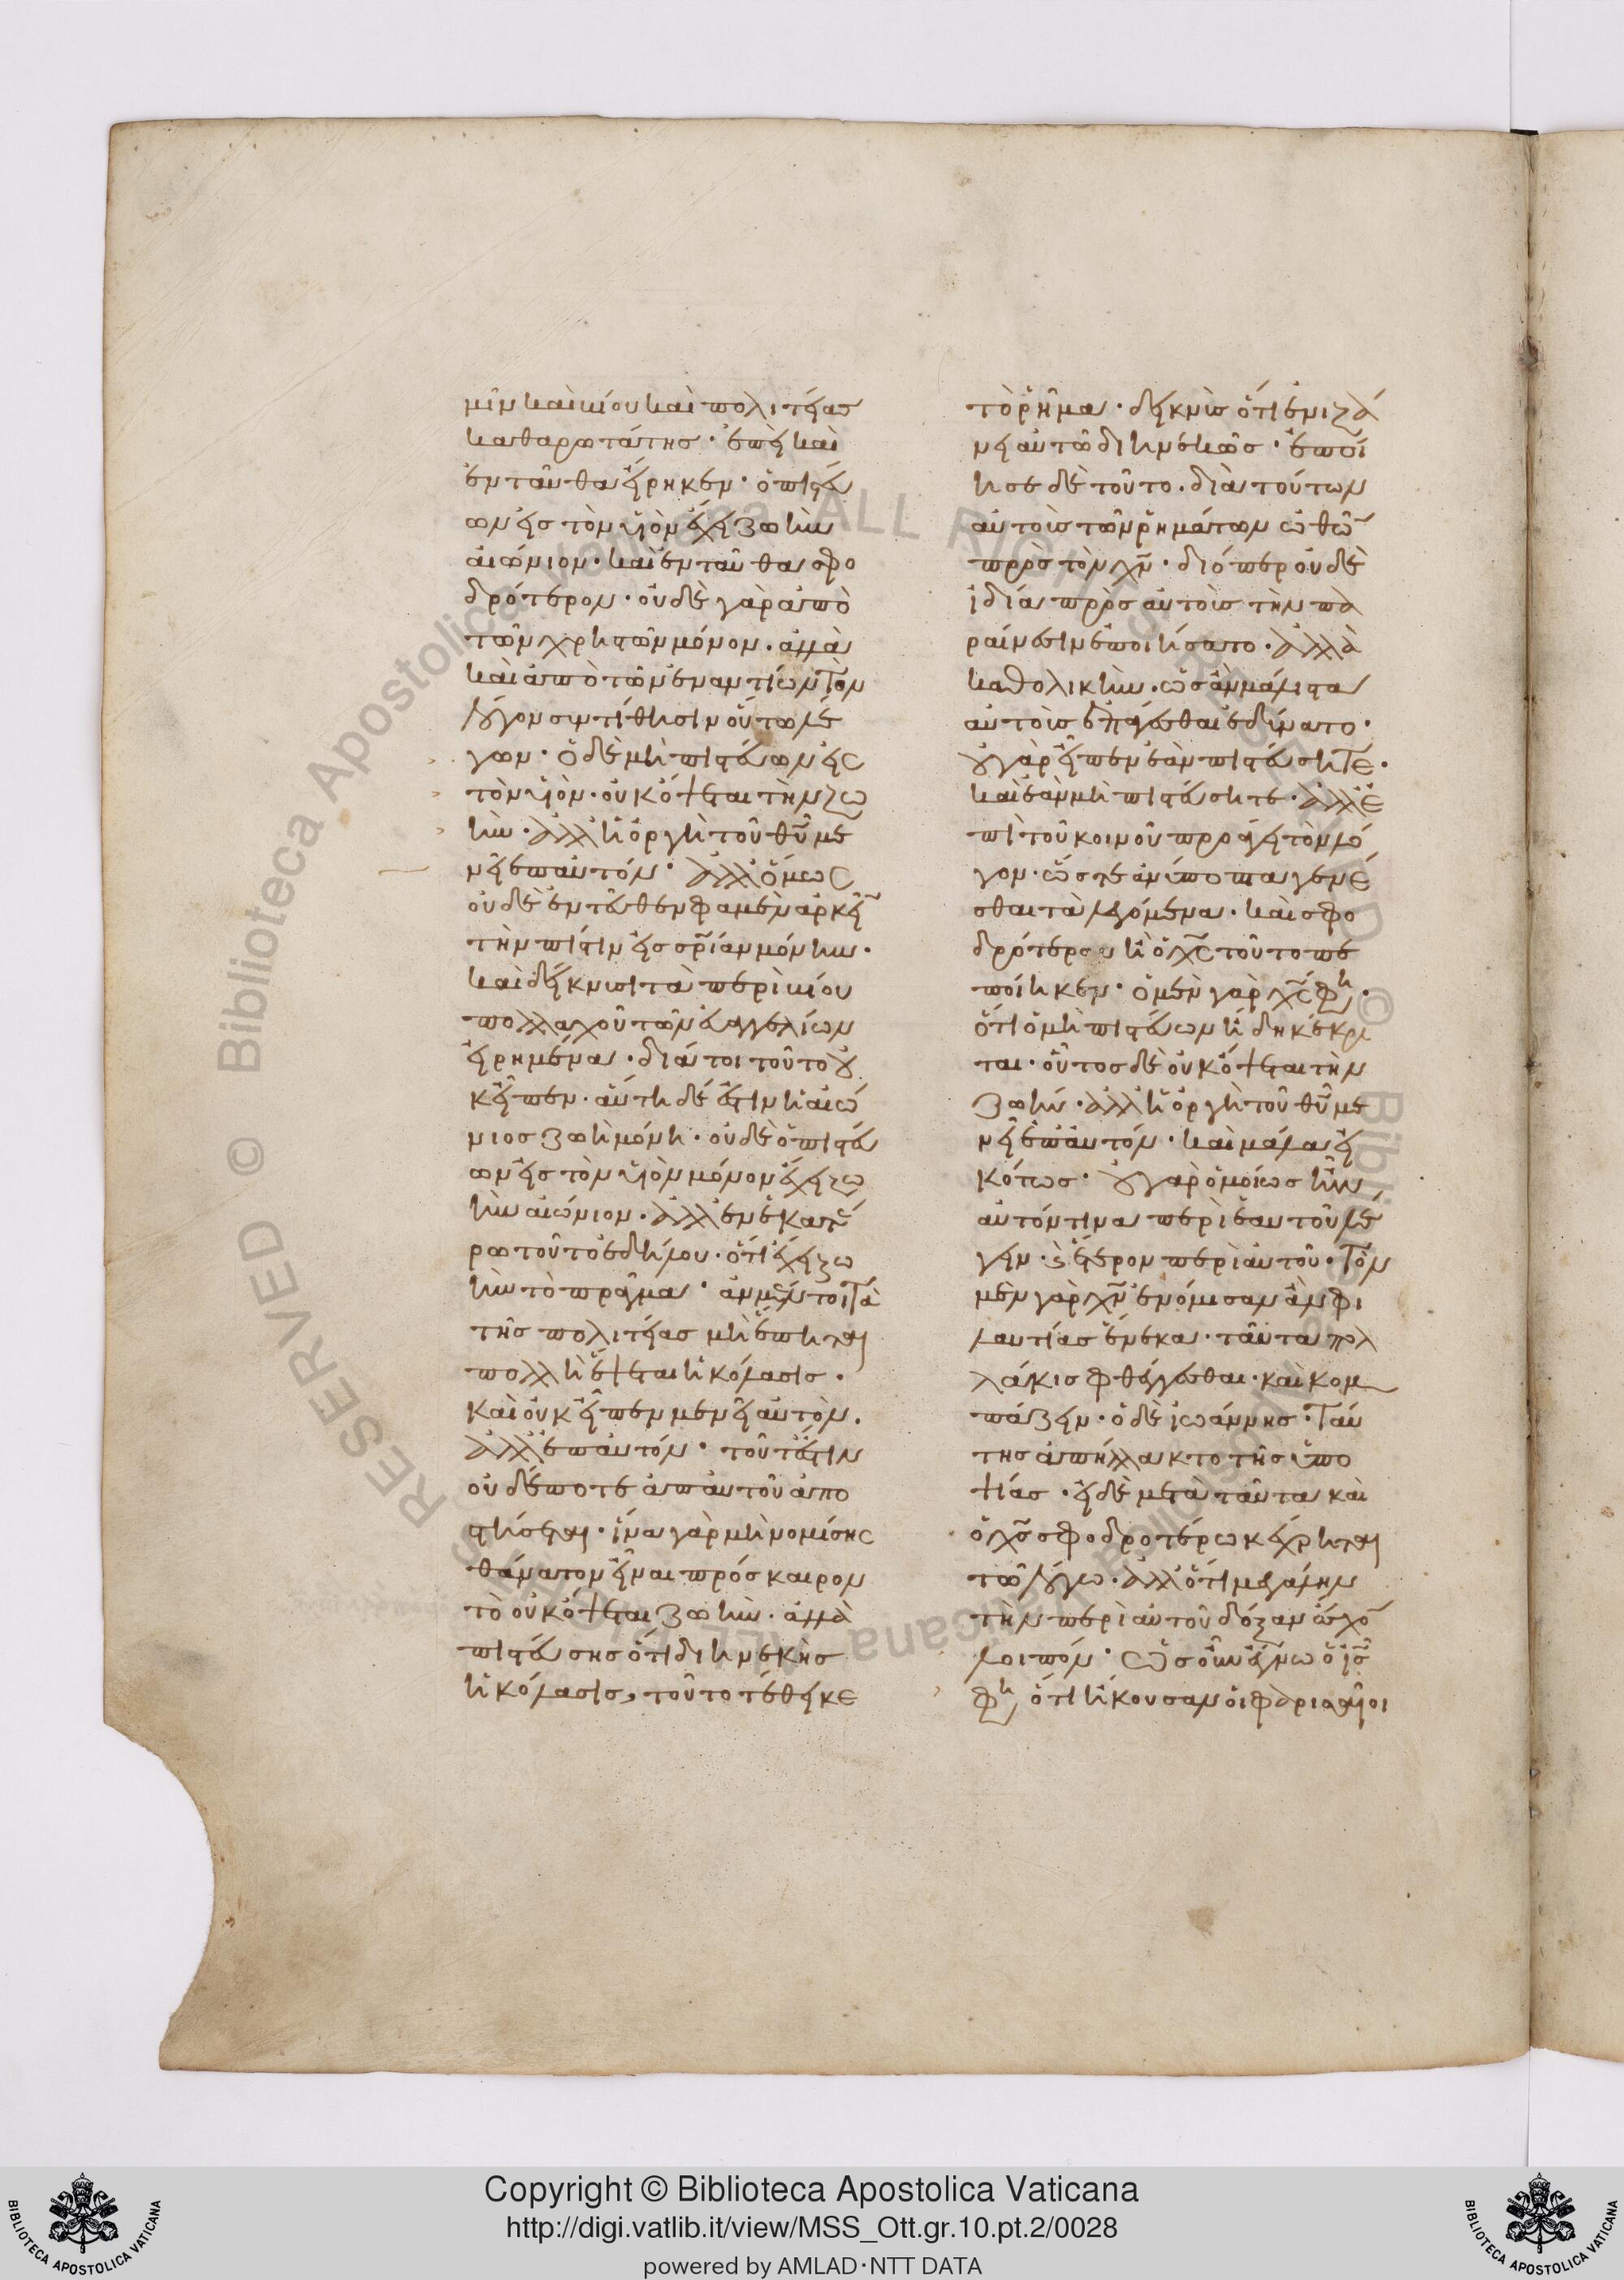 μῖν καὶ βίου καὶ πολιτείας
καθαρωτάτης· ἐπεὶ καὶ
ἐνταῦθα εἴρηκεν· ὁ πιστεύ
ων εἰς τὸν υἱὸν ἔχει ζωὴν
αἰώνιον· καὶ ἐνταῦθα σφο
δρότερον· οὐδὲ γὰρ ἀπὸ
τῶν χρηστῶν μόνον. ἀλλὰ
καὶ ἀπὸ τῶν ἐναντίων τὸν
λόγον συντίθησιν οὕτω λέ
γων· ὁ δὲ μὴ πιστεύων εἰς
τὸν υἱὸν. οὐκ ὄψεται τὴν ζω
ὴν. ἀλλ' ἡ ὀργὴ τοῦ θῦ μέ
νει ἐπ' αὐτόν· ἀλλ' ὅμως
οὐδὲ ἐντεῦθεν φαμὲν ἀρκεῖν
τὴν πίστιν εἰς σρίαν μόνην·
καὶ δείκνυσι τὰ περὶ βίου
πολλαχοῦ τῶν εὐαγγελίων
εἰρημένα. διά τοι τοῦτο οὐ
κ εἶπεν. αὕτη δέ ἐστιν ἡ αἰώ
νιος ζωὴ μόνη. οὐδὲ ὁ πιστεύ
ων εἰς τὸν υἱὸν μόνον ἔχει ζω
ὴν αἰώνιον. ἀλλ' ἐν ἑκατέ
ρω τοῦτο ἐδήλου. ὅτι ἔχει ζω
ὴν τὸ πρᾶγμα· ἂν μέντοι τὰ
τῆς πολιτείας μὴ ἕπηται
πολλὴ ἕψεται ἡ κόλασις.
καὶ οὐκ εἶπεν μενεῖ αὐτὸν.
ἀλλ' ἐπ' αὐτόν· τοῦτ' ἔστιν
οὐδέποτε ἀπ' αὐτοῦ ἀπο
στήσεται. ἵνα γὰρ μὴ νομίσης
θάνατον εἶναι πρόσκαιρον
τὸ οὐκ ὄψεται ζωὴν. ἀλλὰ
πιστεύσης ὅτι διηνεκὴς
ἡ κόλασις, τοῦτο τέθεικε
τὸ ῥῆμα. δεικνὺς ὅτι ἐνιζά
νει αὐτῶ διηνεκῶς· ἐποί
ησε δὲ τοῦτο. διὰ τούτων
αὐτοὺς τῶν ῥημάτων ὠθῶν
πρὸς τὸν χν. διόπερ οὐδὲ
ἰδία πρὸς αὐτοὺς τὴν πα
ραίνεσιν ἐποιήσατο. ἀλλὰ
καθολικὴν. ὡς ἂν μάλιστα
αὐτοὺς ἐπάγεσθαι ἐδύνατο.
οὐ γὰρ εἶπεν ἐὰν πιστεύσητε.
καὶ ἐὰν μὴ πιστεύσητε. ἀλλ' ἐ
πὶ τοῦ κοινοῦ προάγει τὸν λό
γον. ὥστε ἀνύποπτα γενέ
σθαι τὰ λεγόμενα. καὶ σφο
δρότερον ἢ ὁ χς τοῦτο πε
ποίηκεν· ὁ μὲν γὰρ χς φη.
ὅτι ὁ μὴ πιστεύων ἤδη κέκρι
ται. οὗτος δὲ οὐκ ὄψεται τὴν
ζωήν. ἀλλ' ἡ ὀργὴ τοῦ θῦ μέ
νει ἐπ' αὐτόν. καὶ μάλα εἰ
κότως· οὐ γὰρ ὁμοίως ἦν
αὐτόν τινα περὶ ἑαυτοῦ λέ
γειν. καὶ ἕτερον περὶ αὐτοῦ. τὸν
μὲν γὰρ χν ἐνόμισαν ἂν φι
λαυτίας ἕνεκα. ταῦτα πολ
λάκις φθέγγεσθαι. καὶ κομ
πάζειν. ὁ δὲ ἰωάννης. ταύ
της ἀπήλλακτο τῆς ὑπο
ψίας. εἰ δὲ μετὰ ταῦτα καὶ
ὁ χς σφοδροτέρω κέχρηται
τῶ λόγω. ἀλλ' ὅτι μεγάλην
τὴν περὶ αὐτοῦ δόξαν εἶχον
λοιπόν· ὡς οὖν ἔγνω ὁ ις
φη ὅτι ἤκουσαν οἱ φαρισαῖοι
Copyright © Biblioteca Apostolica Vaticana
http://digi.vatlib.it/view/MSS_Ott.gr.10.pt.2/0028
powered by AMLAD·NTT DATA